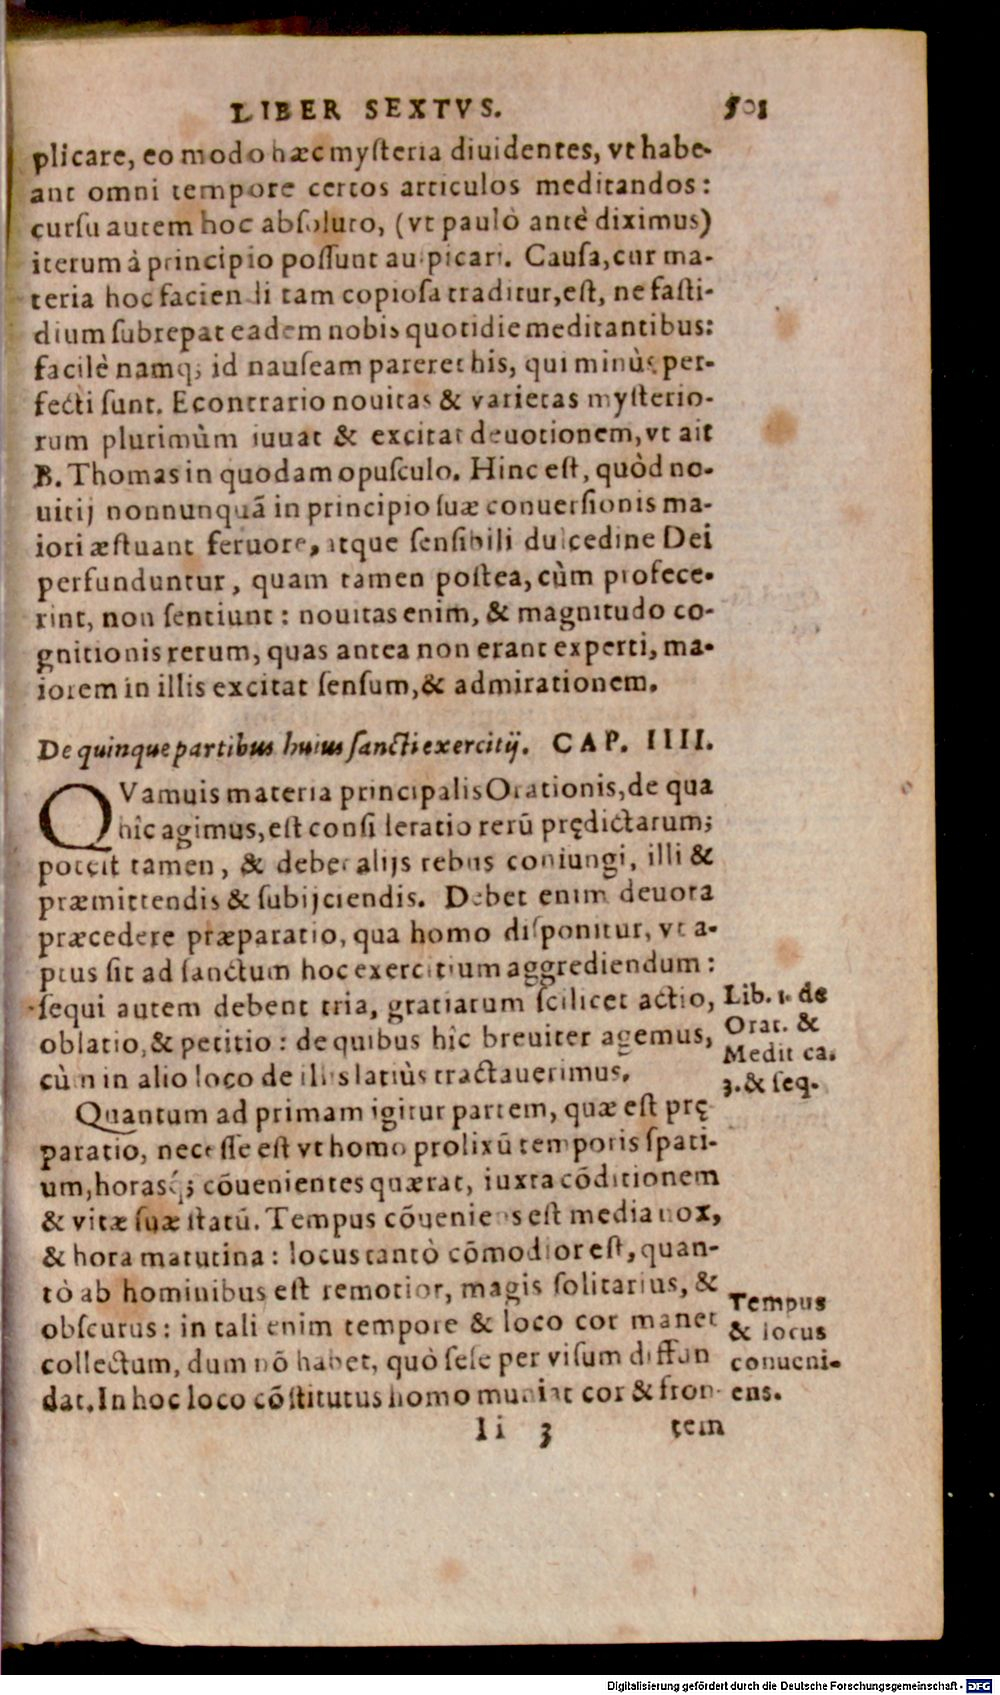 LIBER SEXTVS. 501
plicare, eo modo hæc myſteria diuidentes, vt habe-
ant omni tempore certos articulos meditandos:
curſu autem hoc abſoluto, (vt paulò antè diximus)
iterum à principio poſſunt auſpicari. Cauſa, cur ma-
teria hoc faciendi tam copioſa traditur, eſt, ne faſti-
dium ſubrepat eadem nobis quotidie meditantibus:
facilè namq; id nauſeam pareret his, qui minùs per-
fecti ſunt. Econtrario nouitas & varietas myſterio-
rum plurimùm iuuat & excitat deuotionem, vt ait
B. Thomas in quodam opuſculo. Hinc eſt, quòd no-
uitij nonnunquã in principio ſuæ conuerſionis ma-
iori æſtuant feruore, atque ſenſibili dulcedine Dei
perfunduntur, quam tamen poſtea, cùm profece-
rint, non ſentiunt: nouitas enim, & magnitudo co-
gnitionis rerum, quas antea non erant experti, ma-
iorem in illis excitat ſenſum, & admirationem.
De quinque partibus huius ſancti exercitij. CAP. IIII.
QVamuis materia principalis Orationis, de qua
hîc agimus, eſt conſideratio rerũ prędictarum;
poteſt tamen, & debet alijs rebus coniungi, illi &
præmittendis & ſubijciendis. Debet enim deuota
præcedere præparatio, qua homo diſponitur, vt a-
ptus ſit ad ſanctum hoc exercitium aggrediendum:
ſequi autem debent tria, gratiarum ſcilicet actio,
oblatio, & petitio: de quibus hîc breuiter agemus,
cùm in alio loco de illis latiùs tractauerimus.
Lib. 1. de
Orat. &
Medit ca.
3. & ſeq.
Quantum ad primam igitur partem, quæ eſt prę
paratio, neceſſe eſt vt homo prolixũ temporis ſpati-
um, horasq́; cõuenientes quærat, iuxta cõditionem
& vitæ ſuæ ſtatũ. Tempus cõueniens eſt media nox,
& hora matutina: locus tantò cõmodior eſt, quan-
tò ab hominibus eſt remotior, magis ſolitarius, &
obſcurus: in tali enim tempore & loco cor manet
collectum, dum nõ habet, quò ſeſe per viſum diffun
dat. In hoc loco cõſtitutus homo muniat cor & fron-
Tempus
& locus
conueni-
ens.
Ii 3 tem
Digitalisierung gefördert durch die Deutsche Forschungsgemeinschaft - DFG